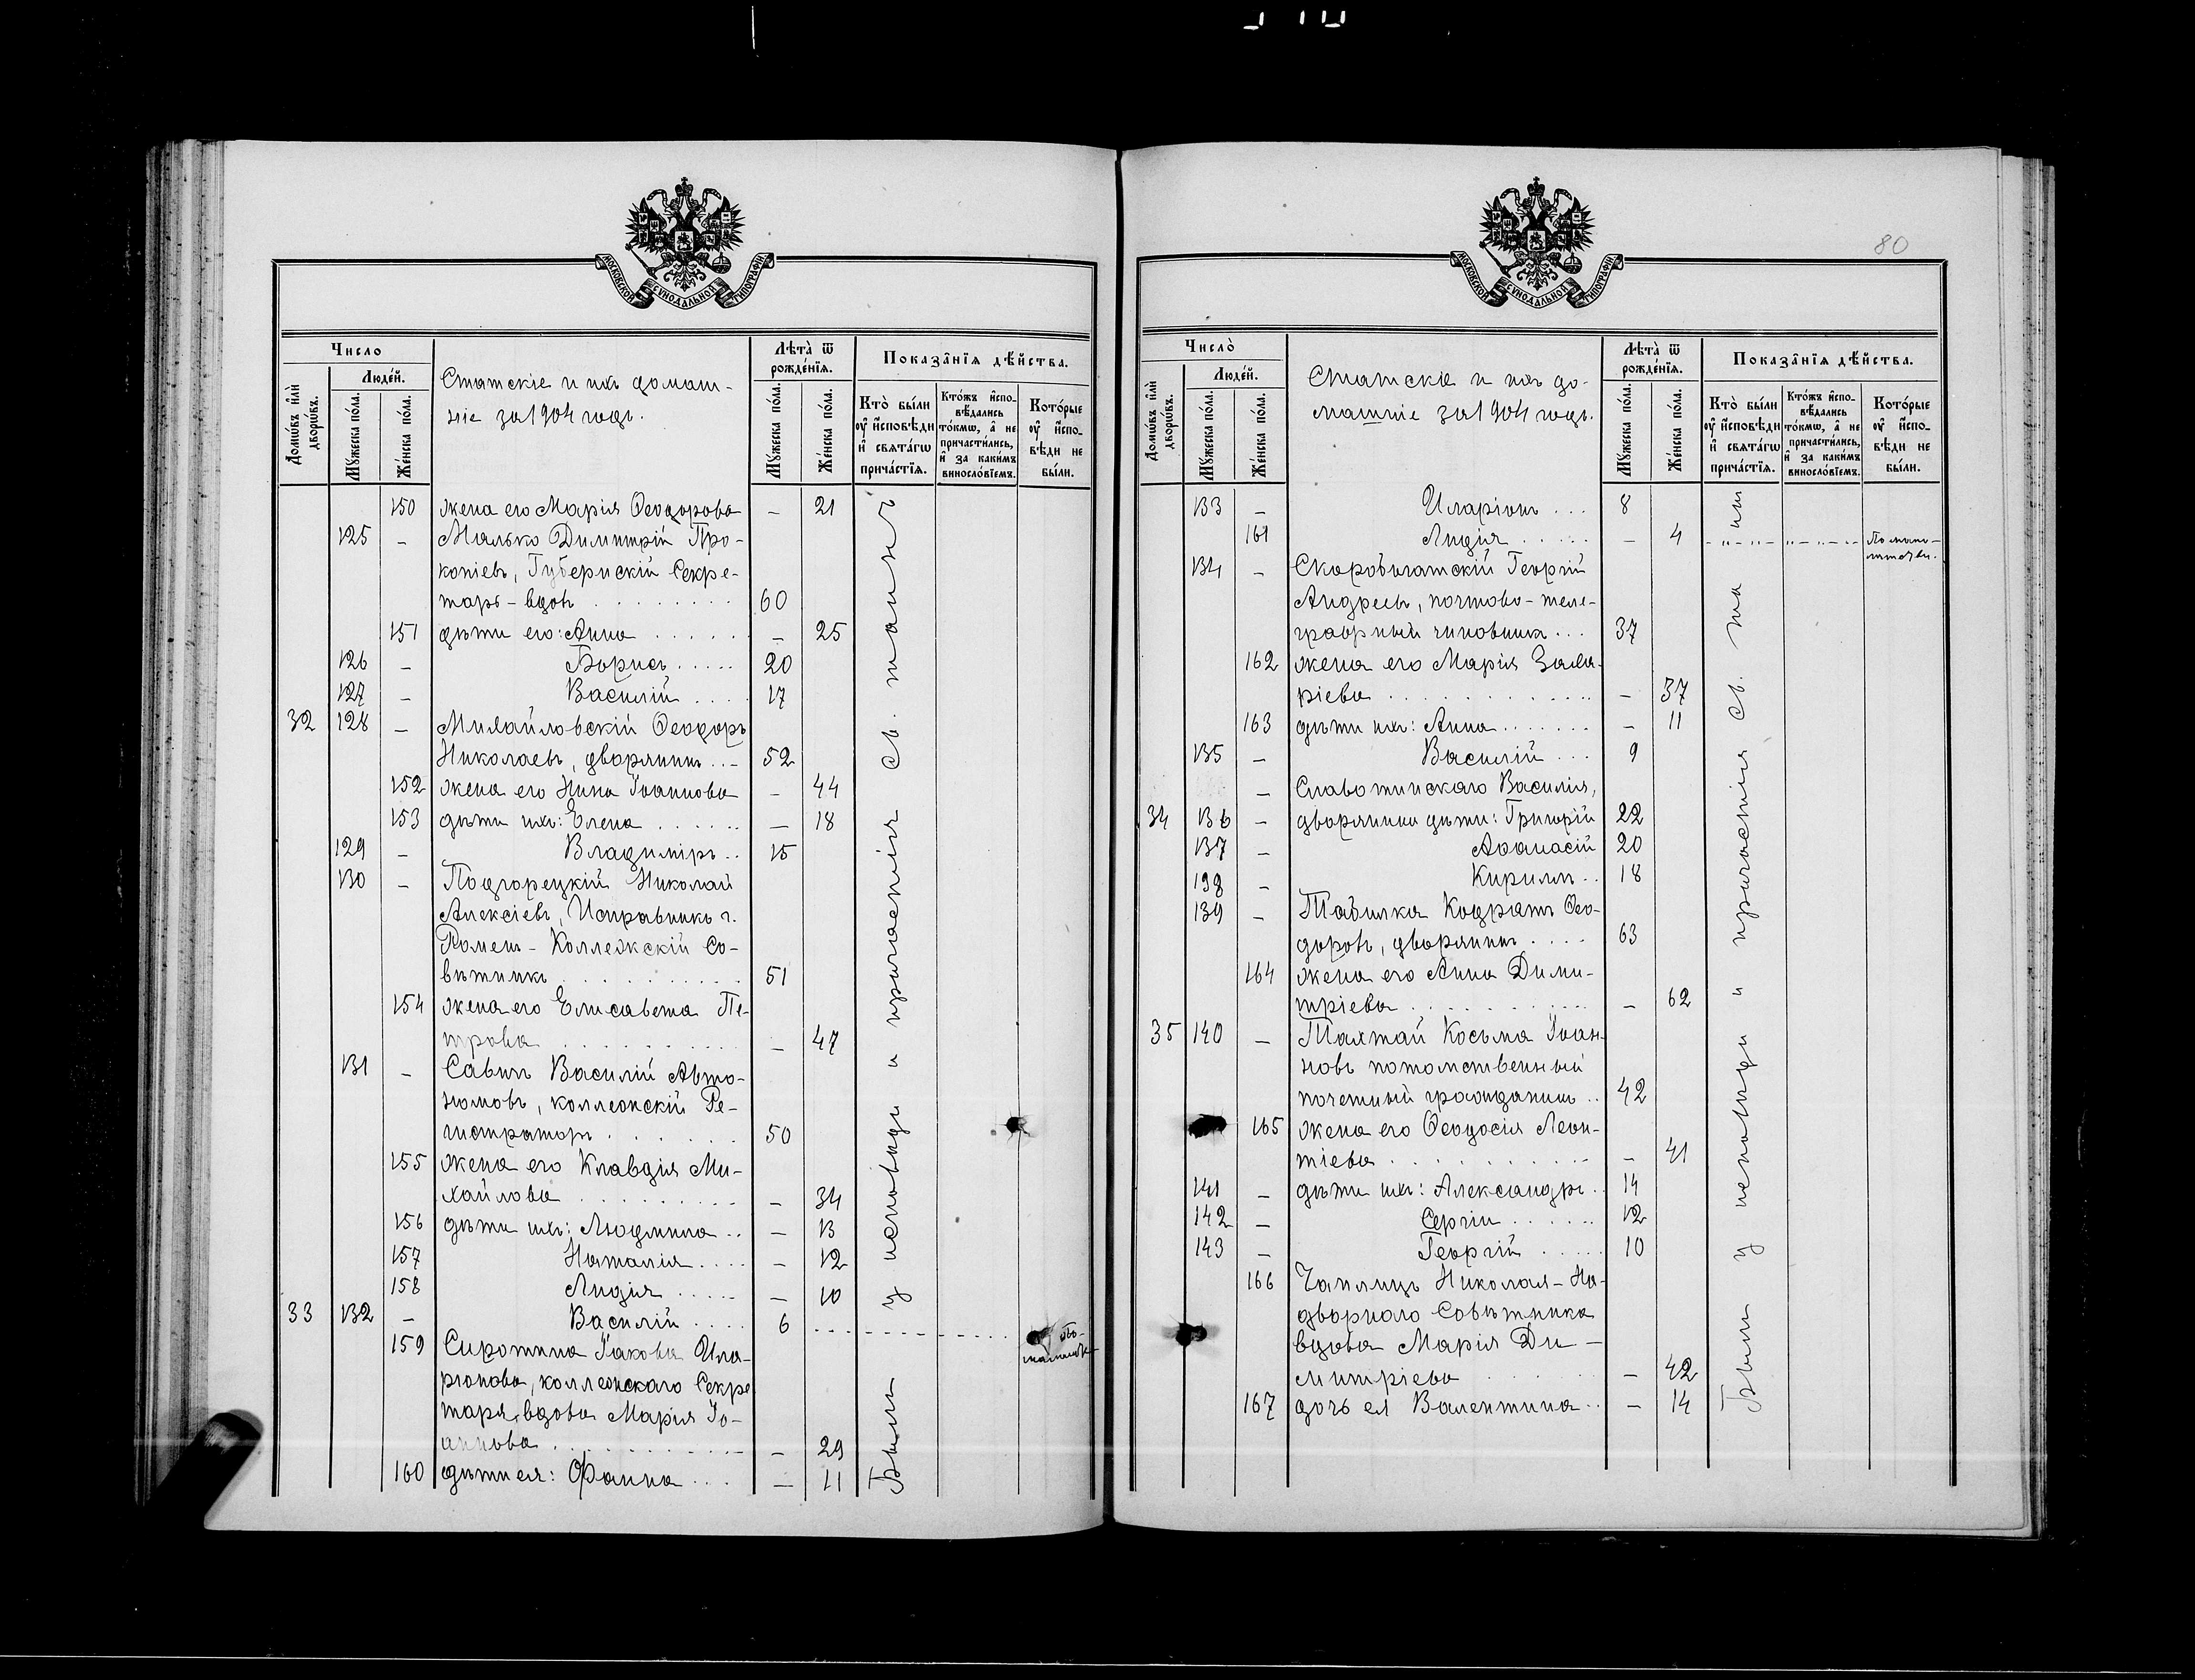 МОСКОВСКОЙ СѴНОДАЛЬНОЙ ТИПОГРАФІИ
Число
Людей.
Домѡвъ или дворѡвъ.
Мужеска пола.
Женска пола.
Статскіе и ихъ домаш-
ніе за 1904 годъ.
Лѣта ѿ рожденія.
Мужеска пола.
Женска пола.
Показанія дѣйства.
Кто были оу исповѣди и святагѡ причастія.
Ктожъ исповѣдались токмѡ, а не причастились, и за какимъ винословіемъ.
Которые оу исповѣди не были.
150 жена его Марія Ѳеодорова – 21
125 – Малько Димитрій Про-
копіевъ, Губернскій Секре-
тарь – вдовъ 60
151 дѣти его: Анна – 25
126 – Борисъ 20
127 – Василій 17
32 128 – Михайловскій Ѳеодоръ
Николаевъ, дворянинъ 52
152 жена его Нина Іоаннова – 44
153 дѣти ихъ: Елена – 18
129 – Владиміръ 15
130 – Подгорецкій Николай
Алексіевъ, Исправникъ г.
Ромемъ – Коллежскій Со-
вѣтникъ 51
154 жена его Елисавета Пе-
трова – 47
131 – Савинъ Василій Авто-
номовъ, коллежскій Ре-
гистраторъ 50
155 жена его Клавдія Ми-
хайлова – 34
156 дѣти ихъ: Людмила – 13
157 Наталія – 12
158 Лидія – 10
33 132 – Василій 6
159 Сиротина Іакова Ила-
ріонова, коллежскаго Секре
таря, вдова Марія Іо-
аннова – 29
160 дѣти ея: Фаина – 11
Были у исповѣди и причастія св. таинъ
80
МОСКОВСКОЙ СѴНОДАЛЬНОЙ ТИПОГРАФІИ
Число
Людей.
Домѡвъ или дворѡвъ.
Мужеска пола.
Женска пола.
Статскіе и ихъ до-
машніе за 1904 годъ.
Лѣта ѿ рожденія.
Мужеска пола.
Женска пола.
Показанія дѣйства.
Кто были оу исповѣди и святагѡ причастія.
Ктожъ исповѣдались токмѡ, а не причастились, и за какимъ винословіемъ.
Которые оу исповѣди не были.
133 – Иларіонъ 8
161 Лидія – 4
По мало-
134 – Скоробогатскій Георгій
Андреевъ, почтово-теле-
графный чиновникъ 37
162 жена его Марія Зала-
ріева – 37
163 дѣти ихъ: Анна – 11
135 – Василій 9
– Славотинскаго Василія,
34 136 – дворянина дѣти: Григорій 22
137 – Аѳанасій 20
198 – Кириллъ 18
139 – Табилка Кодратъ Ѳео-
доровъ, дворянинъ 63
164 жена его Анна Дими-
тріева – 62
35 140 – Тахтай Косьма Іоан-
новъ потомственный
почетный гражданинъ 42
165 жена его Ѳеодосія Леон-
тіева – 41
141 – дѣти ихъ: Александръ 14
142 – Сергій 12
143 – Георгій 10
166 Чаплицъ Николая – На-
дворнаго Совѣтника
вдова Марія Ди-
митріева – 42
167 дочь ея Валентина – 14
Были у исповѣди и причастія св. таинъ